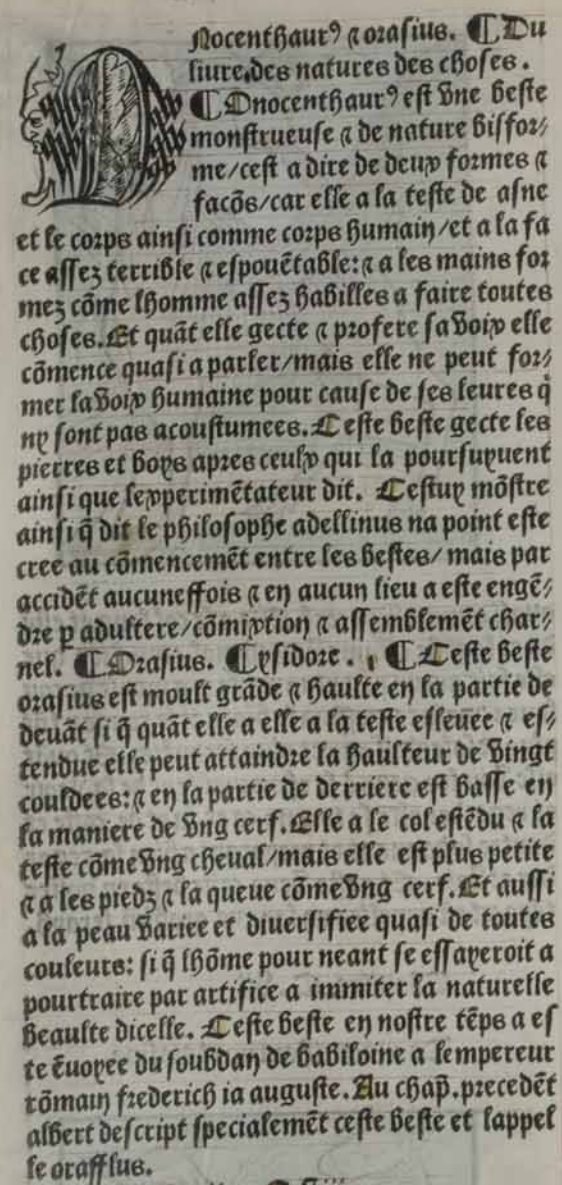 Onocenthaurꝰ ⁊ orasius. ¶Du
liure des natures des choses.
¶Onocenthaurꝰ est vne beste
monstrueuse ⁊ de nature bisfor⸗
me/cest a dire de deux formes ⁊
facõs/car elle a la teste de asne
et le corps ainsi comme corps humain/et a la fa
ce assez terrible ⁊ espouẽtable:⁊ a les mains for
mez cõme lhomme assez habilles a faire toutes
choses. Et quãt elle gecte ⁊ profere sa voix elle
cõmence quasi a parler/mais elle ne peut for⸗
mer la voix humaine pour cause de ses leures q̃
ny sont pas acoustumees. Ceste beste gecte les
pierres et boys apres ceulx qui la poursuyuent
ainsi que lexperimẽtateur dit. Cestuy mõstre
ainsi q̃ dit le philosophe adellinus na point este
cree au cõmencemẽt entre les bestes/ mais par
accidẽt aucuneffois ⁊ en aucun lieu a este engẽ⸗
dre p adultere/cõmixtion ⁊ assemblemẽt char⸗
nel. ¶Orasius. ¶ysidore. ¶Ceste beste
orasius est moult grãde ⁊ haulte en la partie de
deuãt si q̃ quãt elle a elle a la teste esleuee ⁊ es⸗
tendue elle peut attaindre la haulteur de vingt
couldees:⁊ en la partie de derriere est basse en
la maniere de vng cerf. Elle a le col estẽdu ⁊ la
teste cõme vng cheual/mais elle est plus petite
⁊ a les piedz ⁊ la queue cõme vng cerf. Et aussi
a la peau variee et diuersifiee quasi de toutes
couleurs: si q̃ lhõme pour neant se essayeroit a
pourtraire par artifice a immiter la naturelle
beaulte dicelle. Ceste beste en nostre tẽps a es
te ẽuoyee du souldan de babiloine a lempereur
rõmain frederich ia auguste. Au chap̃.precedẽt
albert descript specialemẽt ceste beste et lappel
le orafflus.